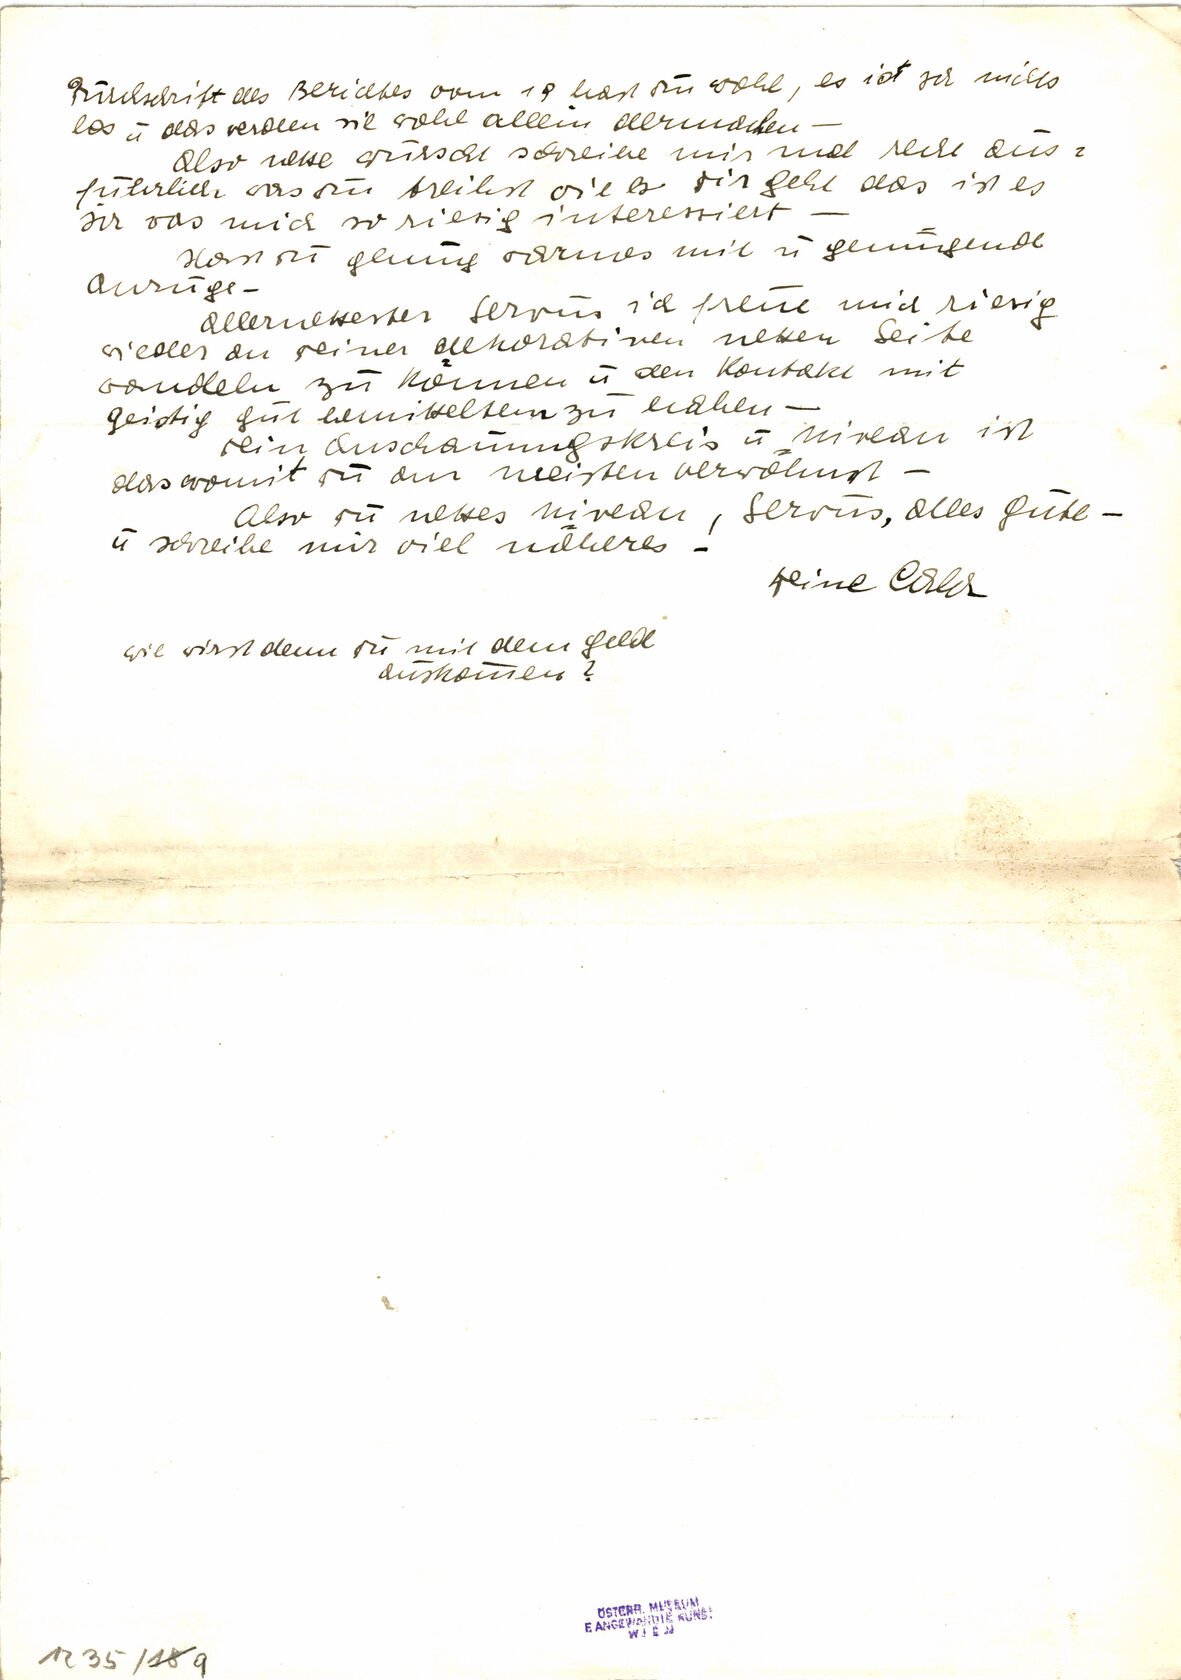 Durchschrift des Berichtes vom 19 hast dū wohl, es ist ja nichts
los ū das werden sie wohl allein dermachen —
Also nette wūrscht schreibe mir mal recht aus=
führlich was dū treibst wie es dir geht das ist es
ja was mich so riesig interessiert —
Hast dū genūg warmes mit ū genügende
Anzüge —
Allernettester Servūs ich freūe mich riesig
wieder an deiner dekorativen netten Seite
wandeln zū können ū den Kontakt mit
geistig gūt bemittelten zū haben —
Dein Anschaūūngskreis ū Niveau ist
das womit dū am meisten verwöhnst —
Also dū nettes Niveau, Servūs, alles gūte —
ū schreibe mir viel näheres —
Deine Carla
wie wirst denn dū mit dem geld
aūskom̄en?
ÖSTERR. MUSEUM
F. ANGEWANDTE KUNST
WIEN
1235/189